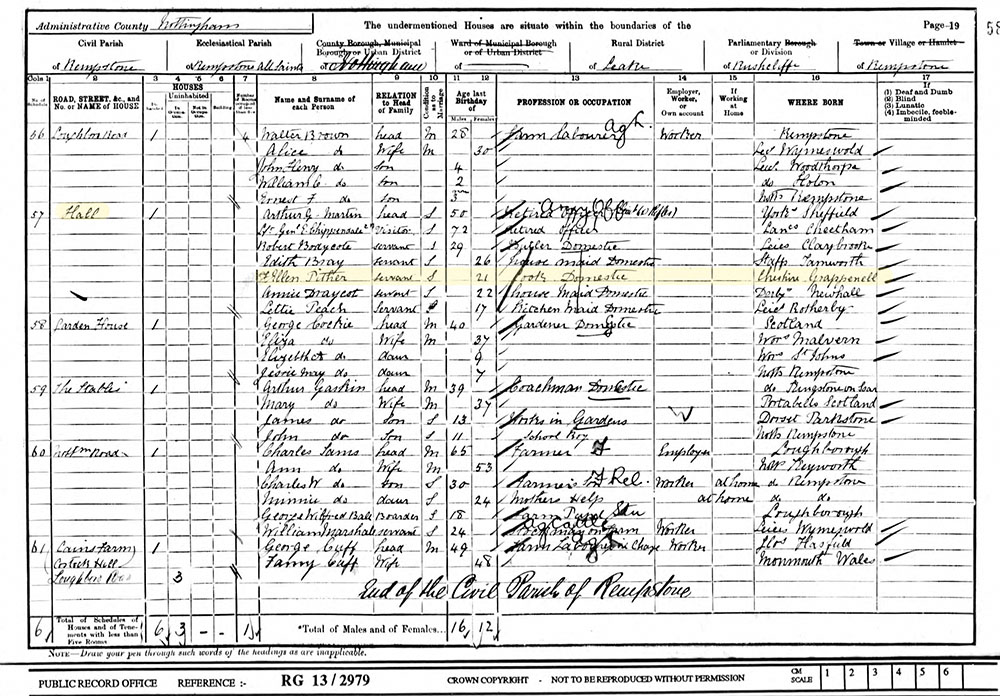 Administrative County Nottingham The undermentioned Houses are situate within the boundaries of the Page-19
58
Civil Parish Ecclesiastical Parish County Borough, Municipal Borough or Urban District Ward of Municipal Borough or of Urban District Rural District Parliamentary Borough or Division Town or Village or Hamlet
of Rempstone of Rempstone All Saints of of of Leake of Rushcliffe of Rempstone
Cols 1 2 3 4 5 6 7 8 9 10 11 12 13 14 15 16 17
No. of Schedule ROAD, STREET, &c., and No. or NAME of HOUSE HOUSES Inhabited Uninhabited In Occupation Not in Occupation Building Number of Name and Surname of each Person RELATION to Head of Family Condition as to Marriage Age last Birthday of Males Females PROFESSION OR OCCUPATION Employer, Worker, or Own account If Working at Home WHERE BORN If (1) Deaf and Dumb (2) Blind (3) Lunatic (4) Imbecile, feeble-minded
56 Loughboro Road 1 4 Walter Brown head M 28 Farm labourer agl. Worker Rempstone
Alice do Wife M 30 Leics Wymeswold
John Henry do son 4 Leics Woodthorpe
William C do Son 2 do Hoton
Ernest F do son 3 m Notts Rempstone
57 Hall 1 Arthur G Martin head S 50 Retired Army Off Yorks Sheffield
Lt Genl E Chippendale Visitor S 72 Retired officer Lancs Cheetham
Robert Bodycote servant S 29 Butler Domestic Leics Claybrooke
Edith Bray servant S 26 House maid Domestic Staffs Tamworth
F Ellen Pither servant S 21 Cook Domestic Cheshire Grappenell
Annie Draycot servant S 22 House Maid Domestic Derby Newhall
Lettie Peach servant S 17 Kitchen Maid Domestic Leics Rotherby
58 Garden House 1 George Cockie head M 40 Gardener Domestic Scotland
Eliza do Wife M 37 Worcs Malvern
Elizabeth do daur 9 Worcs St Johns
Jessie May do daur 7 Notts Rempstone
59 The Stables 1 Arthur Gaskin head M 39 Coachman Domestic do Kingstone on Soar
Mary do Wife M 37 Portabello Scotland
James do Son S 13 Works in Gardens W Dorset Parkstone
John do Son S 11 School Boy Notts Rempstone
60 Nottm Road 1 Charles Tams head M 65 Farmer F Employer Loughborough
Ann do Wife M 53 Notts Keyworth
Charles W do Son S 30 Farmers Son F Rel. Worker at home do Rempstone
Minnie do daur S 24 Mothers Help at home do do
George Wilfred Bale Boarder S 18 Farm Pupil Stu Loughborough
William Marshall servant S 24 on Farm Worker Leics Wymeswold
61 Cains Farm 1 George Cuff head M 49 Farm Labourer in Charge Worker Glos Hasfield
Costock Hill Fanny Cuff Wife 48 Monmouth Wales
Loughboro Road 3
End of the Civil Parish of Rempstone
6 Total of Schedules of Houses and of Tenements with less than Five Rooms 6 3 - - 1 *Total of Males and of Females... 16 12
NOTE—Draw your pen through such words of the headings as are inapplicable.
PUBLIC RECORD OFFICE REFERENCE :- RG 13/2979 CROWN COPYRIGHT - NOT TO BE REPRODUCED WITHOUT PERMISSION CM SCALE 1 2 3 4 5 6